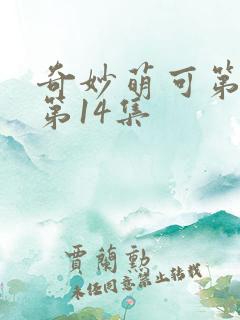 奇妙萌可第
第14集
賈蘭勲
未经同意禁止转载